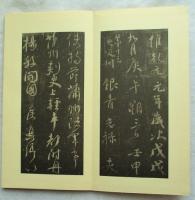 維乾元元年歲次戊戌
九月庚午朔三日壬申
第十三叔銀青光祿夫
使持節蒲州諸軍事
蒲州刺史上輕車都尉丹
楊縣開國侯真卿